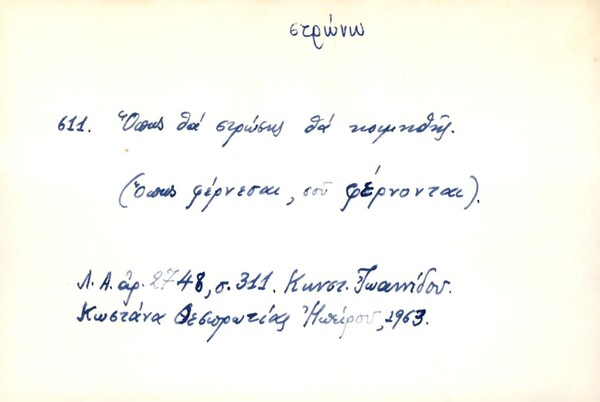 στρώνω
611. Ὅπως θά στρώσῃς θά κοιμηθῇς.
(Ὅπως φέρνεσαι, σοῦ φέρνονται).
Λ.Α. ἀρ. 2748, σ. 311. Κωνστ. Ἰωαννίδου.
Κωστάνα Θεσπρωτίας Ἠπείρου, 1963.